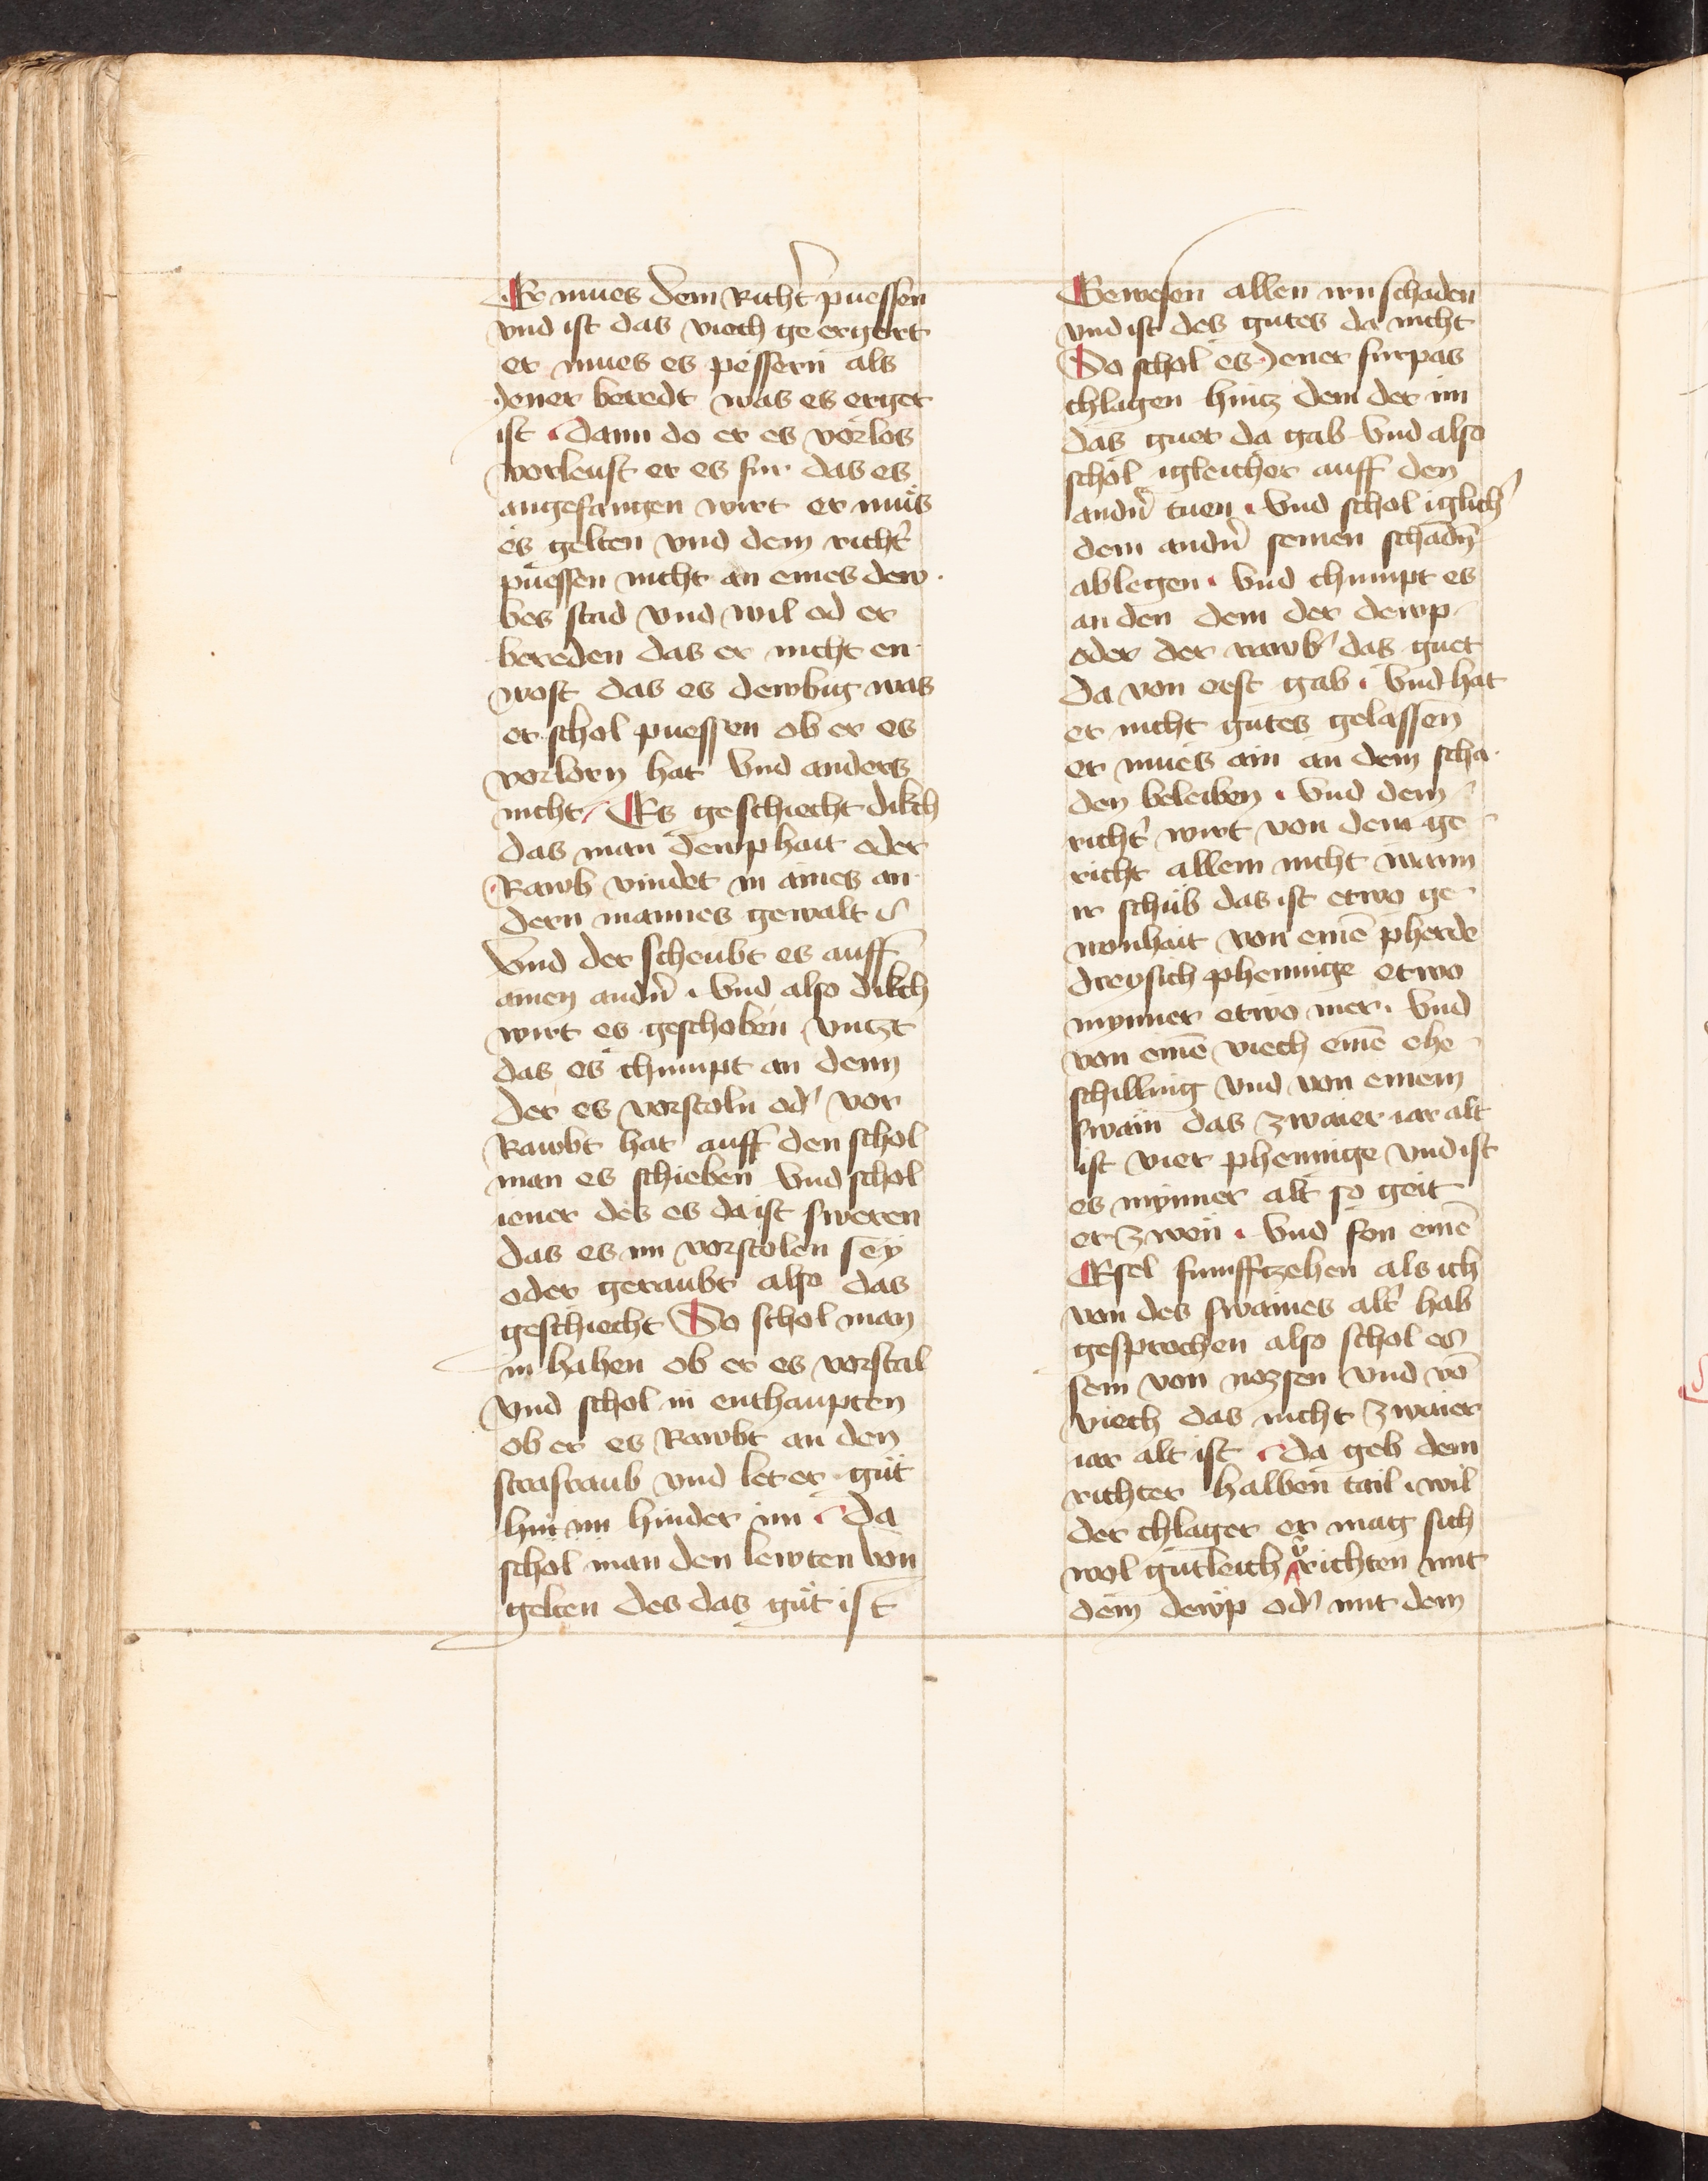 Er mues dem Richt' puessen
vnd ist das viech ge ergert
er mues es pessern als
Jener beredt was es erget
ist Dann do er es vorlos
vorleust er es fur das es
angefangen wirt er mus
es gelten vnd dem richt'
puessen nicht an eines dew
bes stad vnd wil od er
bereden das er nicht en
wost das es dewbig was
er schol puessen ob er es
vorlorn hat Vnd anders
nicht Es geschiecht dikch
das man dewphait oder
Rawb vindet in aines an
dern mannes gewalt
Vnd der scheubt es auff
ainen andn' Vnd also dikch
wirt es geschoben vntzt
das es chumpt an denn
der es vorstoln od' vor
Rawbt hat auff den schol
man es schieben Vnd schol
iener des es da ist sweren
das es im vorstolen sey
oder geraubt also das
geschiecht So schol man
in hahen ob er es vorstal
vnd schol in enthaupten
ob er es Rawbt an den
strasraub vnd let er gut
hin im hinder im Da
schol man den lewten von
gelten des das gut ist
Gewesen allen irn schaden
vnd ist des gutes da nicht
So schol es Jener furpas
chlagen hintz dem der im
das guet da gab Vnd also
schol igleicher auff den
andn' tuen Vnd schol iglich'
dem andn' seinen schadn
ablegen Vnd chumpt es
an den dem der dewp
oder der rawb' das guet
da von erst gab Vnd hat
er nicht gutes gelassen
er mues ain an dem scha
den beleiben Vnd dem
richt' wirt von dem ge
richt allem nicht wann
ir schub das ist etwo ge
wonhait von eine pherde
dreysich phennige etwo
mynner etwo mer Vnd
von eine viech eine ehe
schilling vnd von einem
swain das zwaier iar alt
ist vier phennige vnd ist
es mynner alt so geit
er zwen Vnd fon eine
Esel funfftzehen als ich
von des swaines alt' hab
gesprochen also schol es
sein von nozsen vnd vo
viech das nicht zwaier
iar alt ist Da geb dem
richter halben tail wil
der chlager er mag sich
wol gutleich v'richten mit
dem dewp od' mit dem